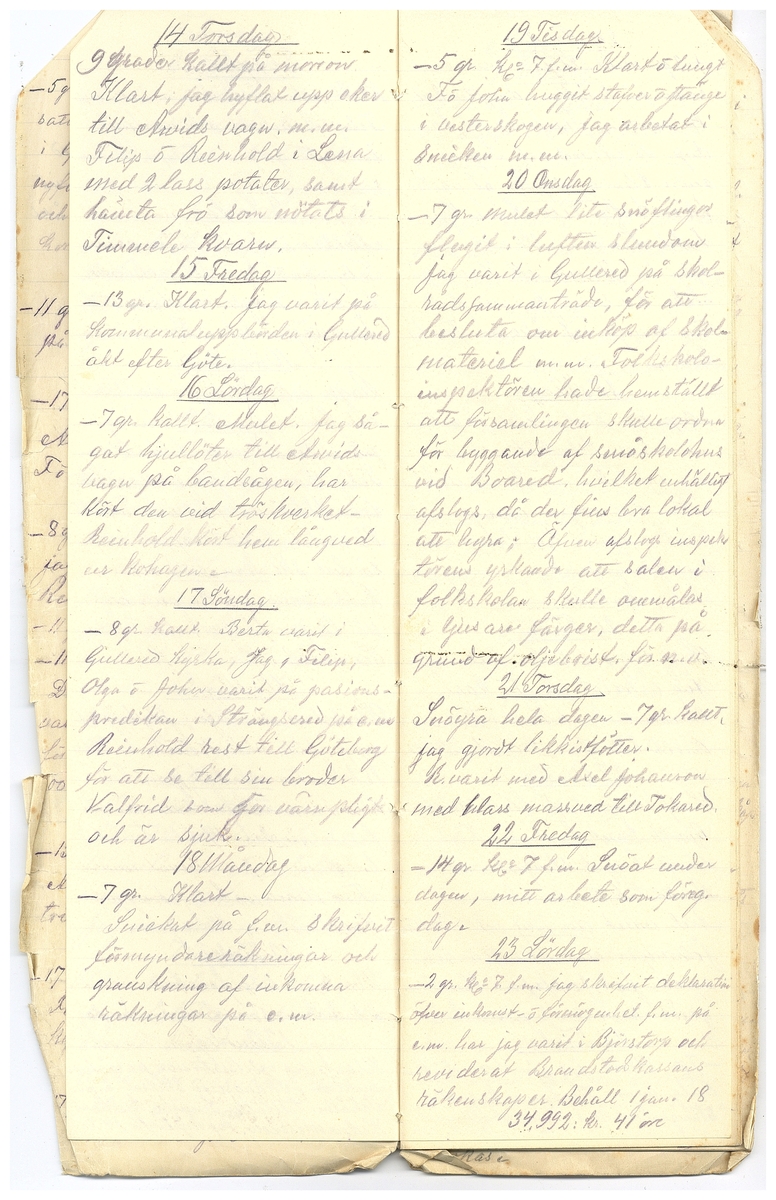 14 Torsdag
9 Grader kallt på morron
Klart, jag hyflat upp eker
till Arvids vagn. m.m.
Filip o Reinhold i Lena
med 2 lass potater, samt
hämta frö som nötats i
Timmele kvarn.
15 Fredag
-13 gr. Klart. jag varit på
Kommunaluppbörden i Gullered
åkt efter Göte.
16 Lördag
-7 gr. kallt. Mulet. jag så-
gat hjullöter till Arvids
vagn på bandsågen, har
kört den vid tröskverket-
Reinhold kört hem långved
ur kohagen-
17 Söndag
-8 gr kallt. Berta varit i
Gullered kyrka, Jag, Filip,
Olga o John varit på pasions-
predikan i Strängsered på e.m
Reinhold rest till Göteborg
för att se till sin broder
Valfrid som gör värnpligt
och är sjuk.
18 Måndag
-7 gr. Klart-
Snickat på f.m. skrifvit
förmyndareräkningar och
granskning af inkomna
räkningar på e.m.
19 Tisdag
-5 gr. kl= 7 f.m. Klart o lungt
Fö John huggit stafver o stänge
i vesterskogen, jag arbetat i
snicken m.m.
20 Onsdag
-7 gr. mulet lite snöflingor
flugit i luften stundom
jag varit i Gullered på skol-
rådssammanträde, för att
besluta om inköp af skol-
materiel m.m. Folkskole-
inspektören hade hemställt
att församlingen skulle ordna
för byggande af småskolehus
vid Boared, hvilket enhälligt
afslogs, då der fins bra lokal
att hyra; Äfven afslogs inspek
törens yrkande att salen i
folkskolan skulle ommålas
i ljusare färger, detta på
grund af oljebrist. för n.v.
21 Torsdag
Snöyra hela dagen -7 gr. kallt,
jag gjordt likkistfötter.
R. varit med Axel Johanson
med lass massved till Tokared.
22 Fredag
-14 gr. kl= 7 f.m. Snöat under
dagen, mitt arbete som föreg.
dag-
23 Lördag
-2 gr. kl= 7 f.m. jag skrifvit deklaration
öfver inkomst- o förmögenhet f.m. på
e.m. har jag varit i Björstorp och
reviderat Brandstodskassans
räkenskaper. Behåll 1 jan. 18
34,992: kr. 41 öre